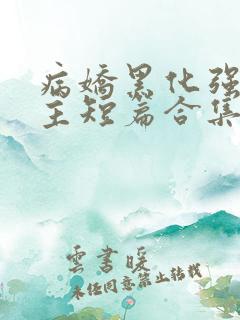 病嬌黑化強
主短篇合集
雲書暖
未经同意禁止转载